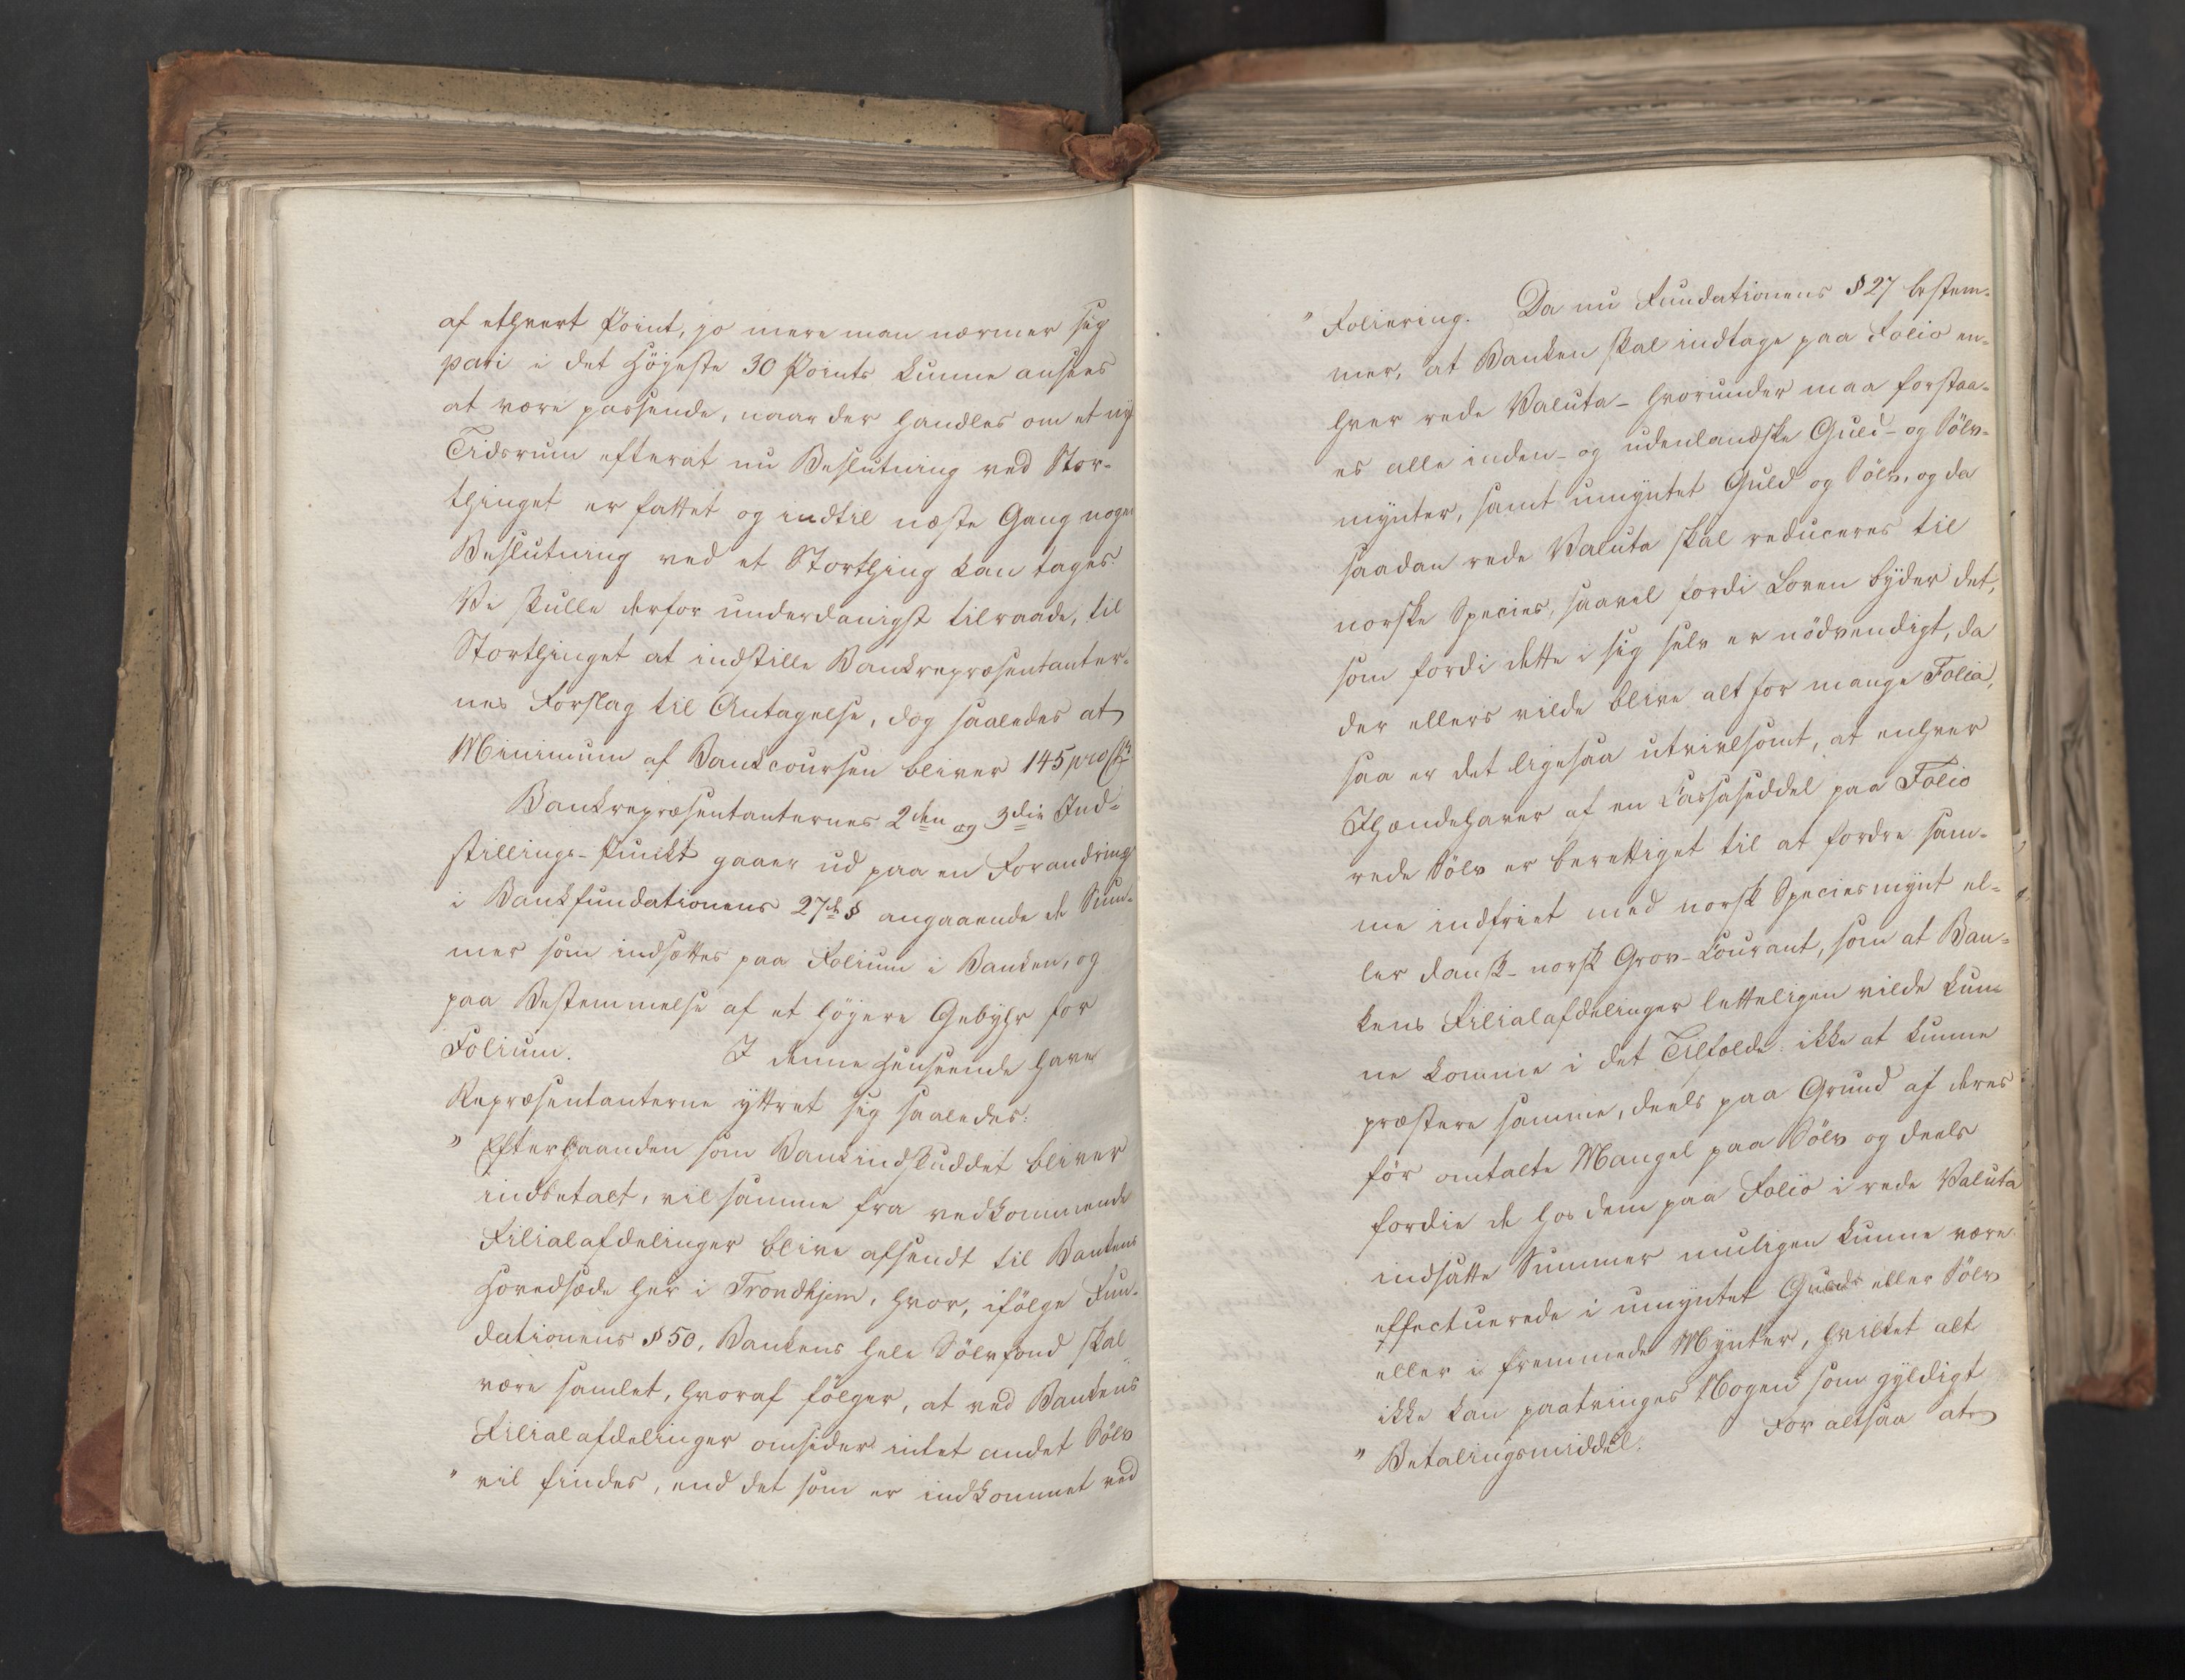 af ethvert Point, jo mere man nærmer sig
pari i det Høyeste 30 Points kunne ansees
at være passende, naar der handles om et nyt
Tidsrum efterat nu Beslutning ved Stor-
thinget er fattet og indtil næste Gang nogen
Beslutning ved et Storthing kan tages.
Vi skulle derfor underdanigst tilraade, til
Storthinget at indstille Bankrepræsentanter-
nes Forslag til Antagelse, dog saaledes at
Minimum af Bankcoursen bliver 145 pro Ct
Bankrepræsentanternes 2den og 3die Ind-
stillings-Punkt gaaer ud paa en Forandring
i Bankfundationens 27de § angaaende de Sum-
mer som indsættes paa Folium i Banken, og
paa Bestemmelse af et høyere Gebyhr for
Folium. I denne Henseende have
Repræsentanterne yttret sig saaledes:
" Efterhaanden som Bankindskuddet bliver
indbetalt, vil samme fra vedkommende
Filialafdelinger blive afsendt til Bankens
Hovedsæde her i Trondhjem, hvor, ifølge Fun-
dationens § 50, Bankens hele Sølvfond skal
være samlet, hvoraf følger, at ved Bankens
Filialafdelinger omsider intet andet Sølv
" vil findes, end det som er indkommet ved
" Foliering. Da nu Fundationens § 27 bestem-
mer, at Banken skal indtage paa Folio en-
hver rede Valuta - hvorunder maa forstaa-
es alle inden- og udenlandske Guld- og Sølv-
mynter, samt umyntet Guld og Sølv, og da
saadan rede Valuta skal reduceres til
norske Species, saavel fordi Loven byder det,
som fordi dette i sig selv er nødvendigt, da
der ellers vilde blive alt for mange Folia,
saa er det ligesaa utvivlsomt, at enhver
Ihændehaver af en Cassaseddel paa Folio
rede Sølv er berettiget til at fordre sam-
me indfriet med norsk Speciesmynt el-
ler dansk-norsk Grov-Courant, som at Ban-
kens Filialafdelinger letteligen vilde kun-
ne komme i det Tilfælde ikke at kunne
præstere samme, deels paa Grund af deres
før omtalte Mangel paa Sølv og deels
fordie de hos dem paa Folio i rede Valuta
indsatte Summer muligen kunne være
effectuerede i umyntet Guld eller Sølv
eller i fremmede Mynter, hvilket alt
ikke kan paatvinges Nogen som gyldigt
" Betalingsmiddel. For altsaa at